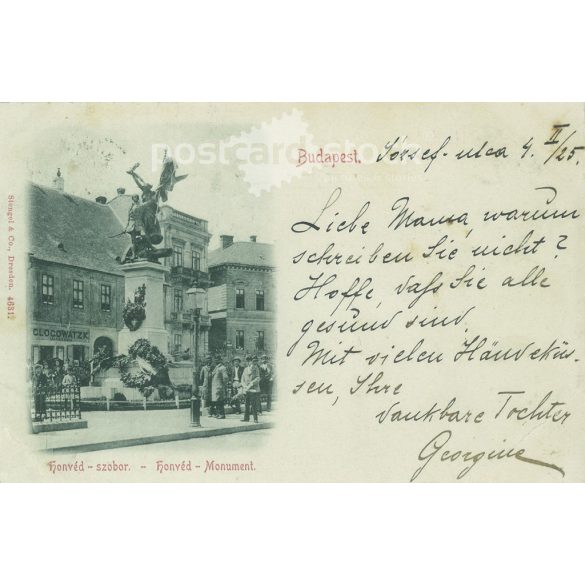 Budapest. József-utca 4. II/25.
Liebe Mama, warum
schreiben Sie nicht?
Hoffe, daſs Sie alle
gesund sind.
Mit vielen Händeküs-
sen, Ihre
dankbare Tochter
Georgine
Stengel & Co., Dresden. 46317
GLOGOWATZ K
Honvéd - szobor. - Honvéd - Monument.